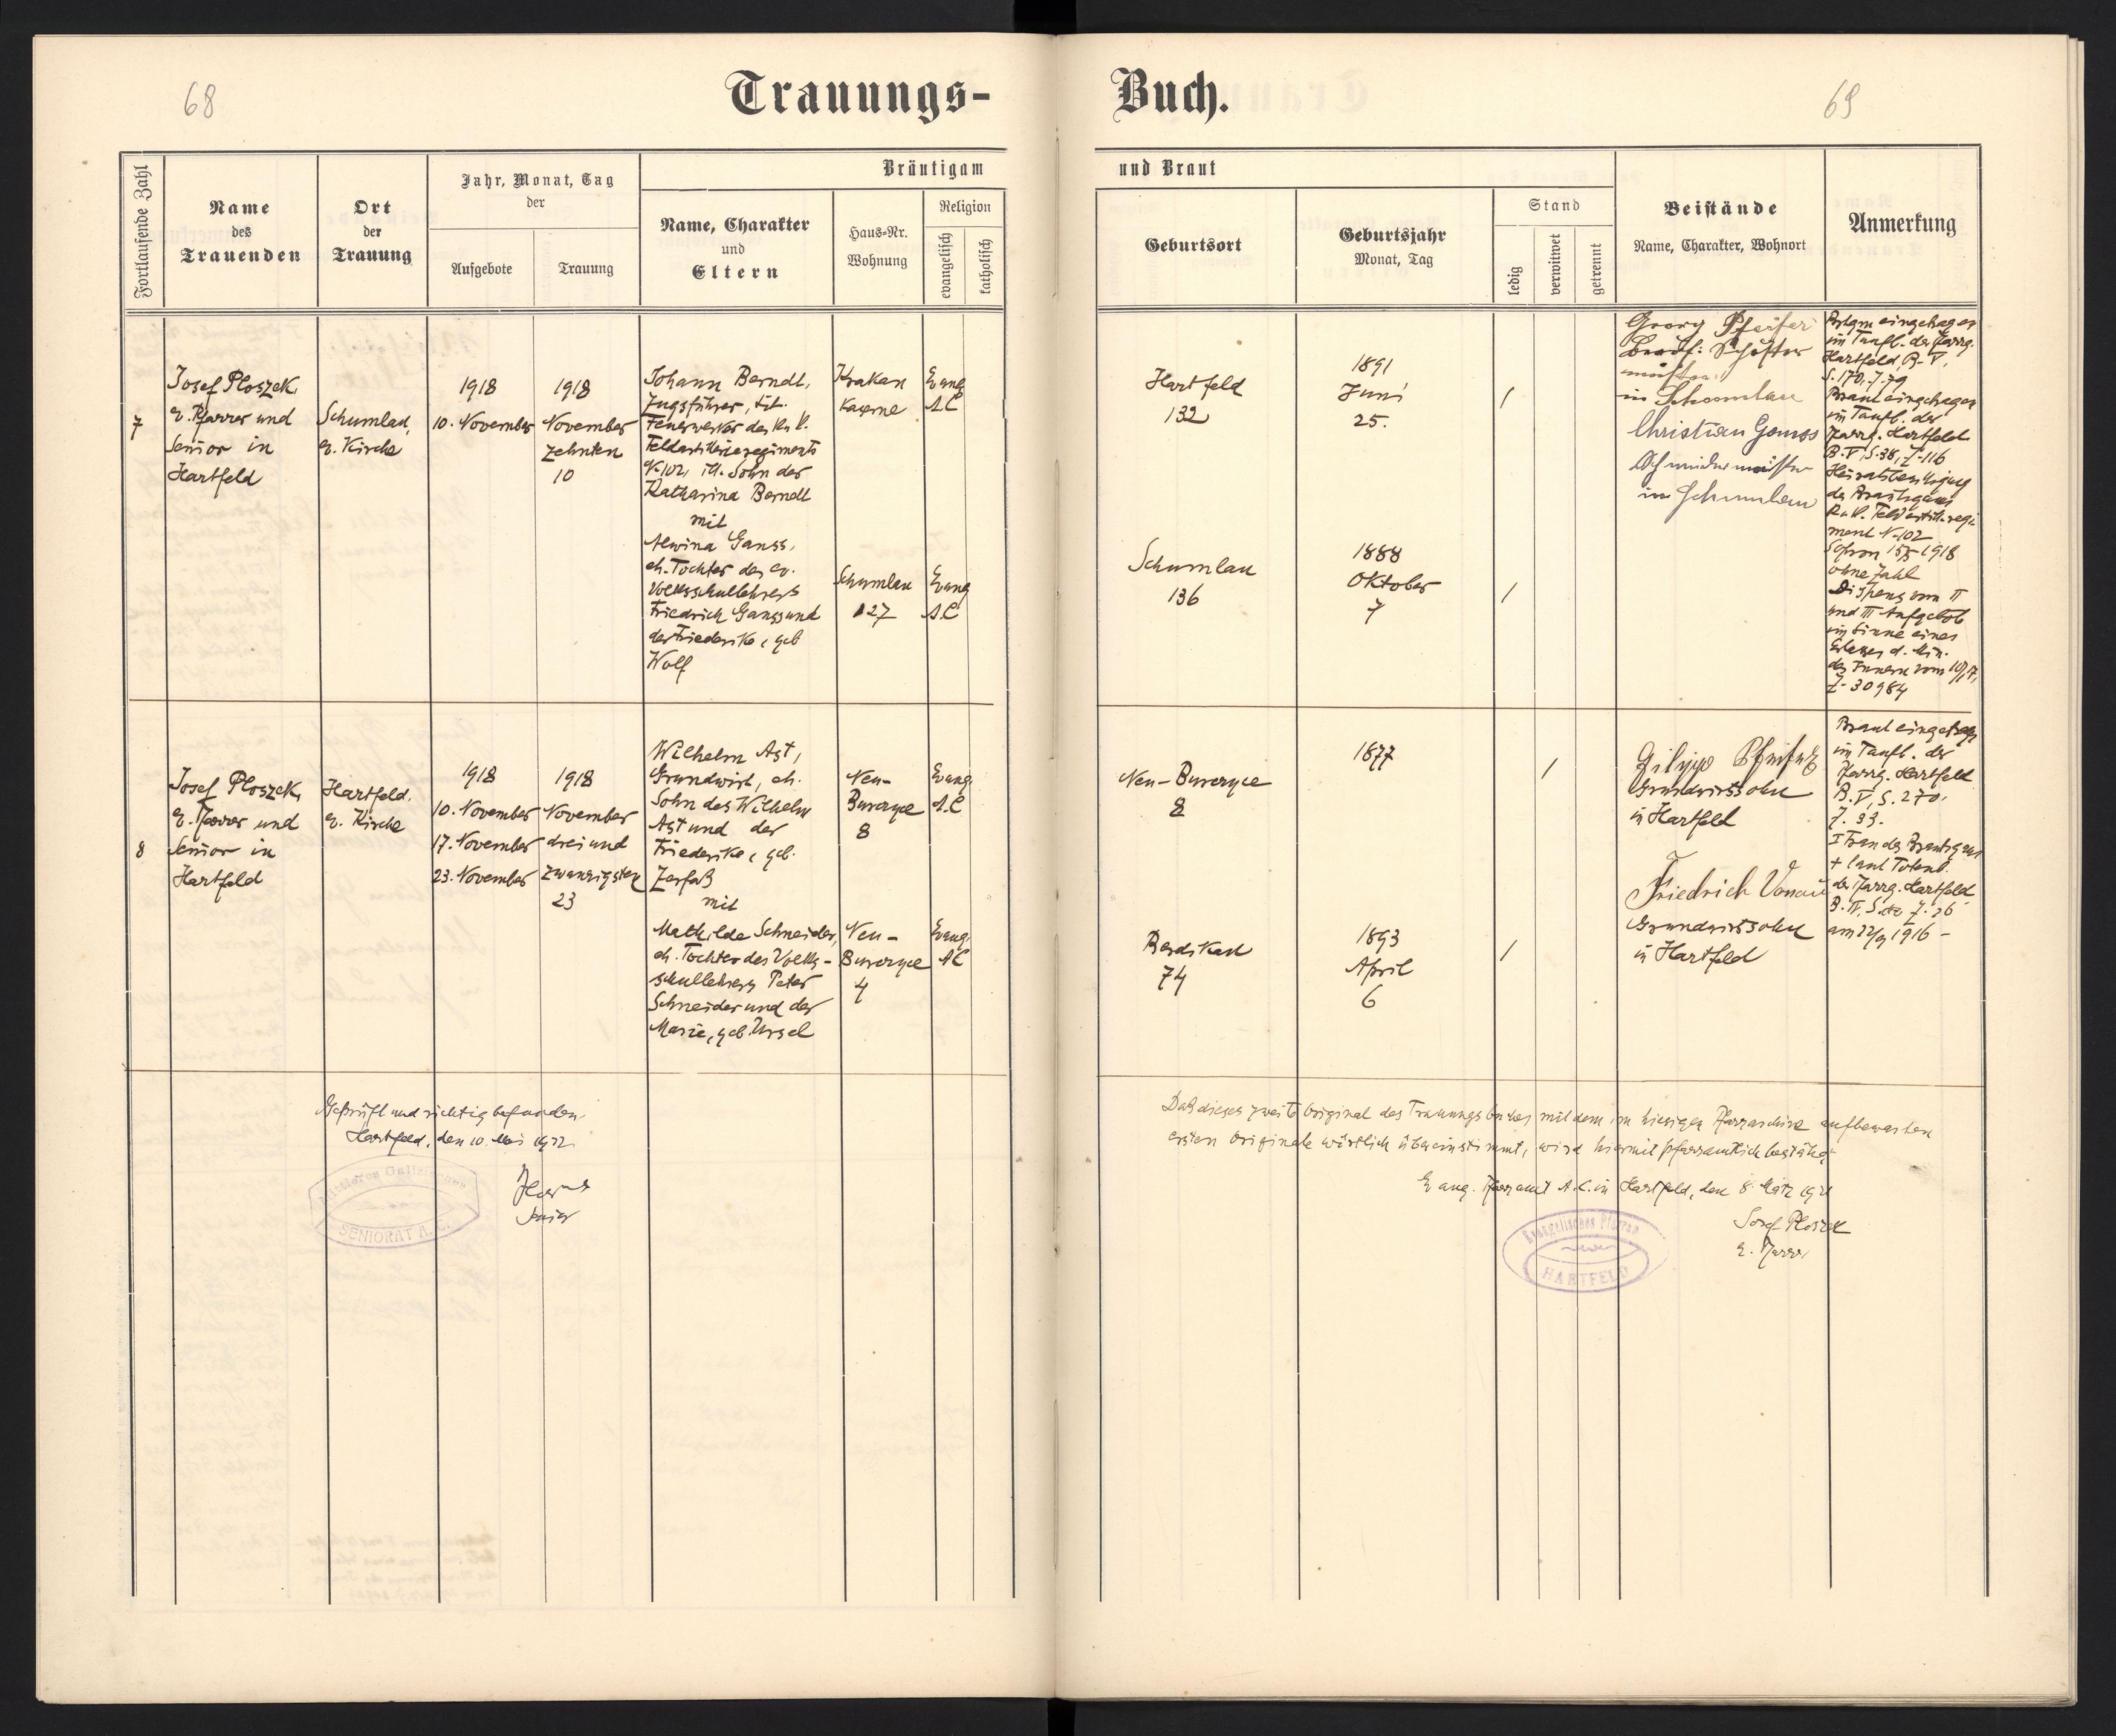 68
Trauungs-
Fortlaufende Zahl
Name
des
Trauenden
Ort
der
Trauung
Jahr, Monat, Tag
der
Aufgebote
Trauung
Bräutigam
Name, Charakter
und
Eltern
Haus-Nr.
Wohnung
Religion
evangelisch
katholisch
7
Josef Ploszek,
e. Pfarrer und
Senior in
Hartfeld
Schumlau,
e. Kirche
1918
10. November
1918
November
zehnten
10
Johann Berndt,
Zugsführer, tit.
Feuerwerker des k.u.k.
Feldartillerieregiments
N-102, ill. Sohn der
Katharina Berndt
mit
Alwina Ganss,
eh. Tochter des ev.
Volksschullehrers
Friedrich Ganss und
der Friederike, geb
Wolf
Krakau
Kaserne
Evang
A.C
Schumlau
127
Evang
A.C
8
Josef Ploszek,
e. Pfarrer und
Senior in
Hartfeld
Hartfeld,
e. Kirche
1918
10. November
17. November
23. November
1918
November
drei und
zwanzigsten
23
Wilhelm Ast,
Grundwirt, eh.
Sohn des Wilhelm
Ast und der
Friederike, geb.
Zerfaß
mit
Mathilde Schneider,
eh. Tochter des Volks-
schullehrers Peter
Schneider und der
Marie, geb. Ursel
Neu-
Burczyce
8
Evang.
A.C
Neu-
Burczyce
4
Evang.
A.C
Geprüft und richtig befunden.
Hartfeld, den 10. Mai 1922.
Senior
SENIORAT A. C.
Buch.
69
und Braut
Geburtsort
Geburtsjahr
Monat, Tag
Stand
ledig
verwitwet
getrennt
Beistände
Name, Charakter, Wohnort
Anmerkung
Hartfeld
132
1891
Juni
25.
/
Schumlau
136
1888
Oktober
7
/
Georg Pfeifer
in Schumlau
Christian Ganss
in Schumlau
Brtgm eingetragen
im Taufb. der Pfarrg.
Hartfeld, B. V,
S. 170, Z. 79
Braut eingetragen
im Taufb. der
Pfarrg. Hartfeld
B. V, S. 38, Z-116
Heiratsbewilligung
des Bräutigams
K.u.k. Feldartill.regi
ment N-102
1918
ohne Zahl
Dispens vom II
und III Aufgebot
im Sinne eines
Erlasses d. Min.
des Innern vom
Z-30984
Neu-Burczyce
8
1877
/
Berdikau
74
1893
April
6
/
Filipp Pfeifer
Grundwirtssohn
in Hartfeld
Friedrich Vonau
Grundwirtssohn
in Hartfeld
Braut eingetrag
im Taufb. der
Pfarrg. Hartfeld
B. V, S. 270,
Z. 33.
I Frau des Bräutigams
+ laut Totenb.
der Pfarrg. Hartfeld
Z. 26
am 22/9 1916 -
Daß dieses zweite Original des Trauungsbuches mit dem im hiesigen Pfarrarchive aufbewahrten
ersten Originale wörtlich übereinstimmt, wird hiermit pfarramtlich bestätigt.
Evang. Pfarramt A.C. in Hartfeld, den 8. März 1921
Josef Ploszek
e. Pfarrer
HARTFELD